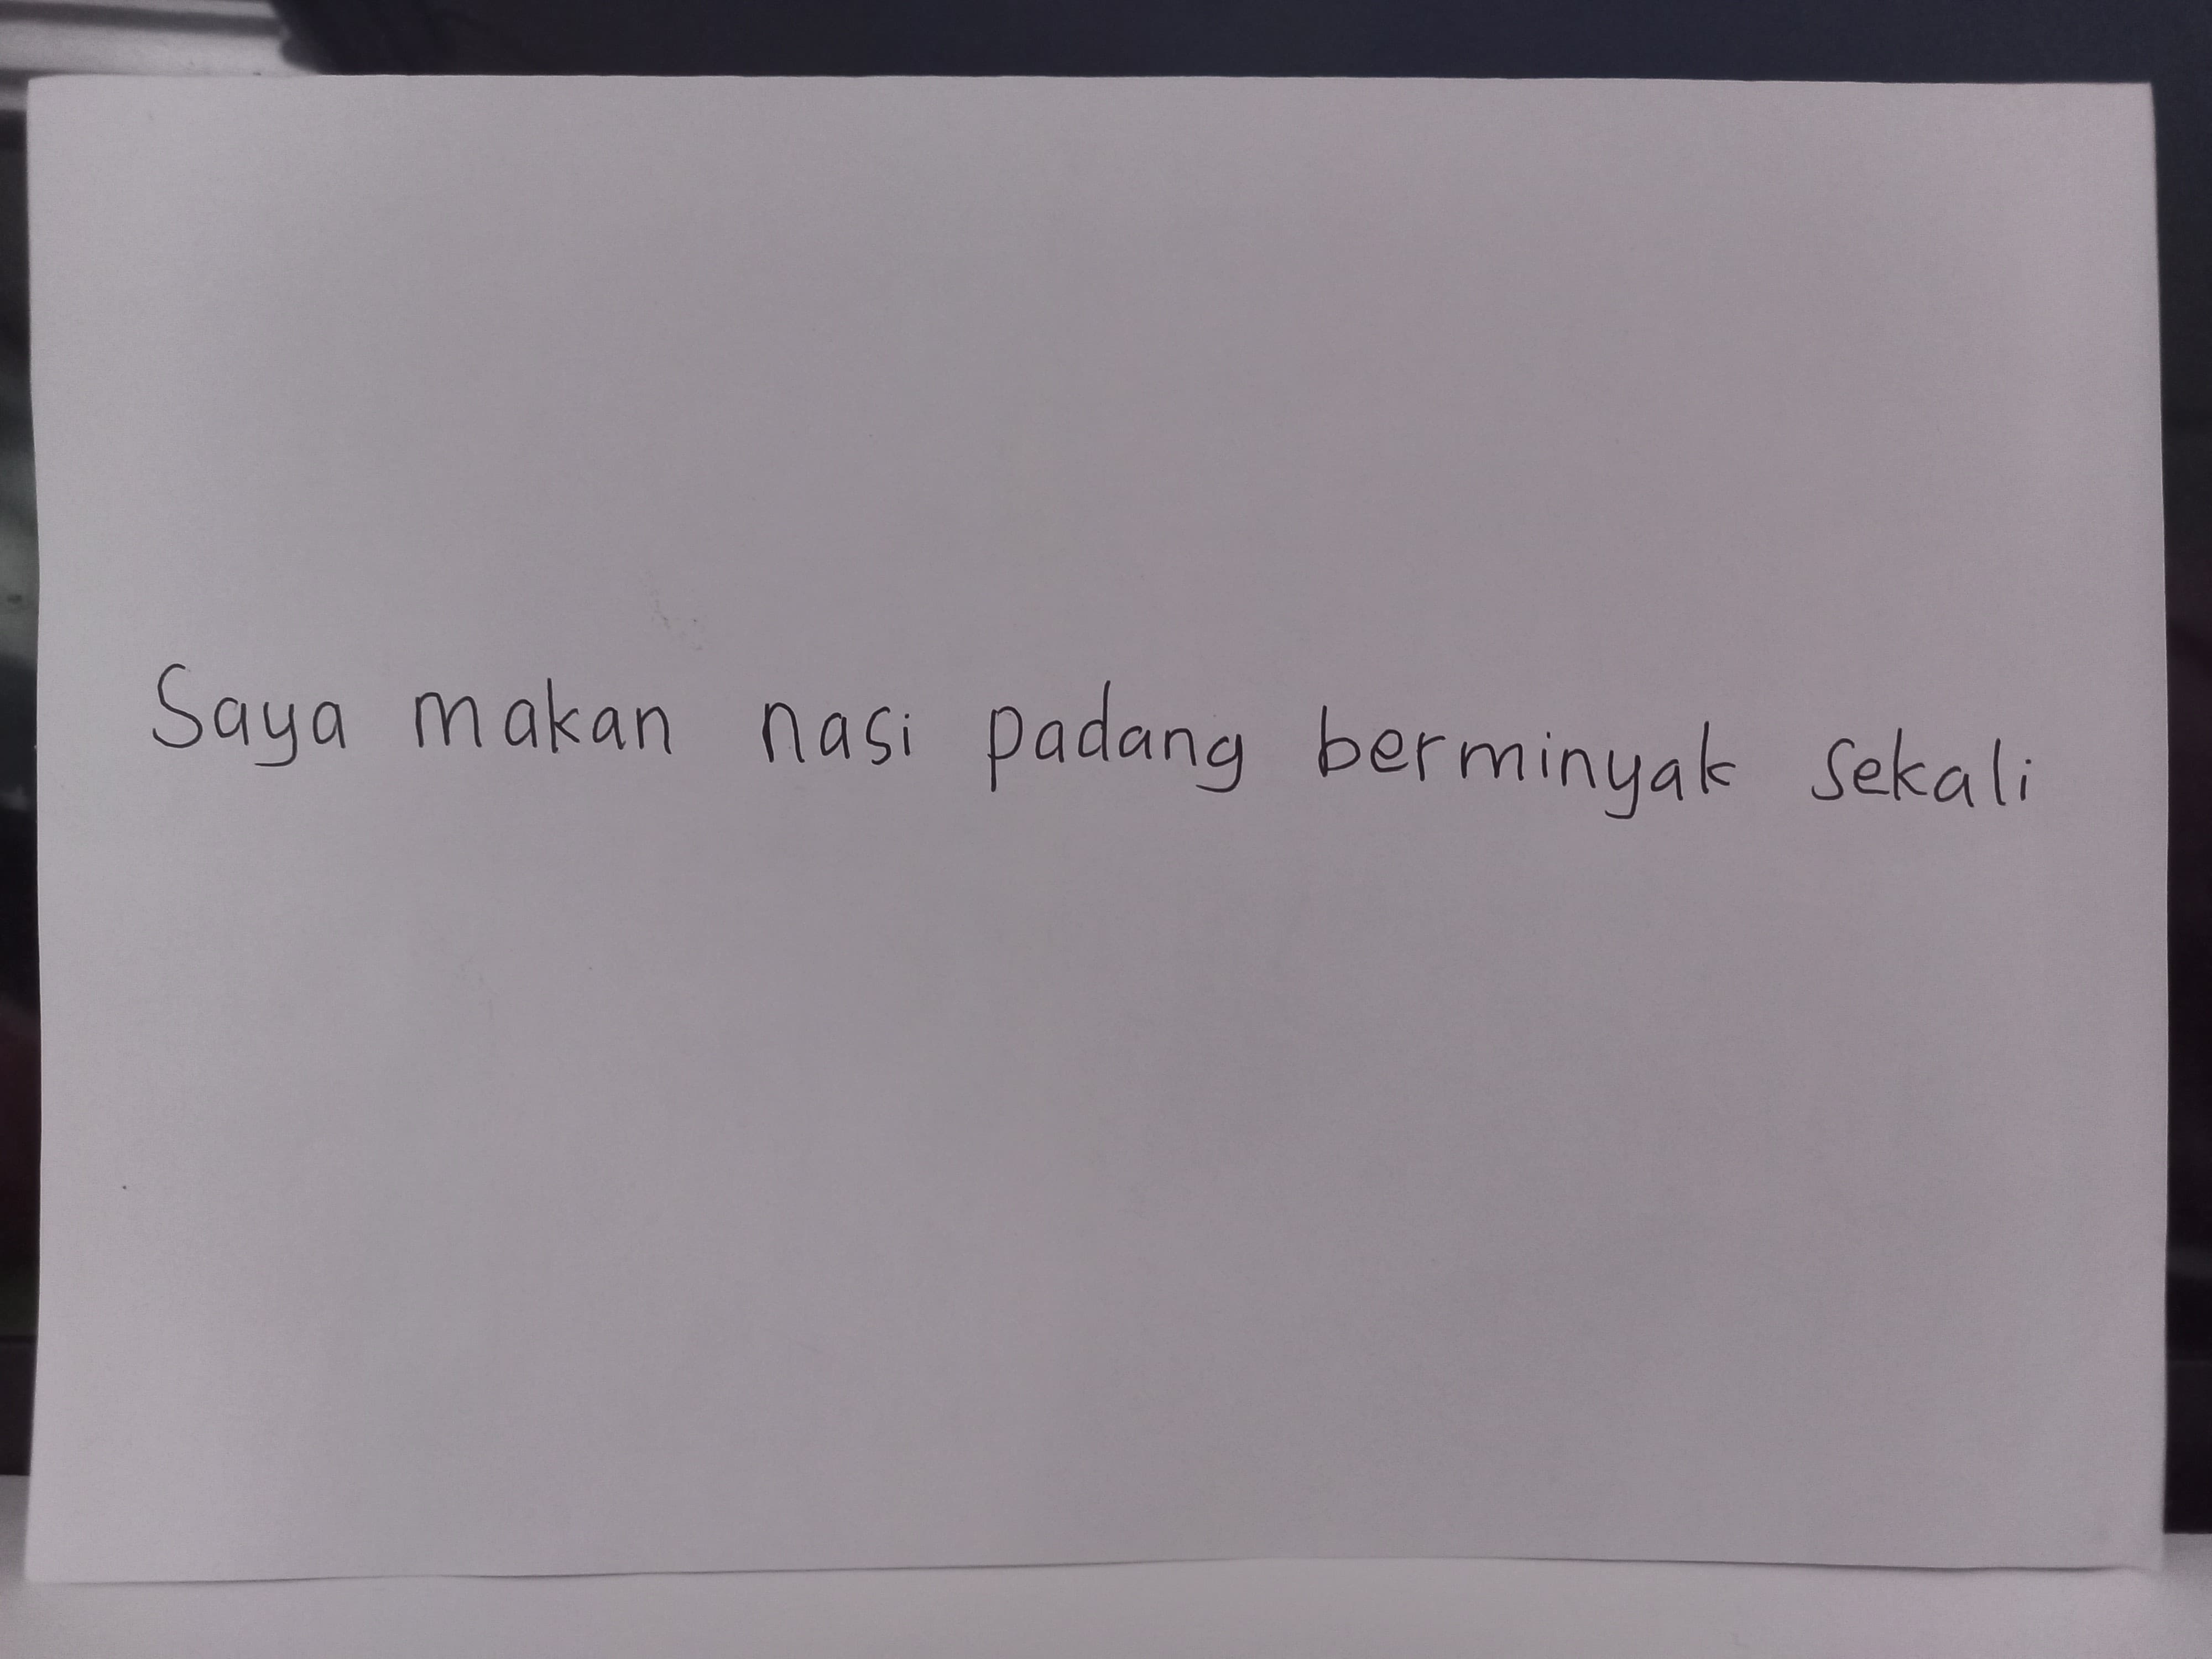 Saya makan nasi padang berminyak sekali